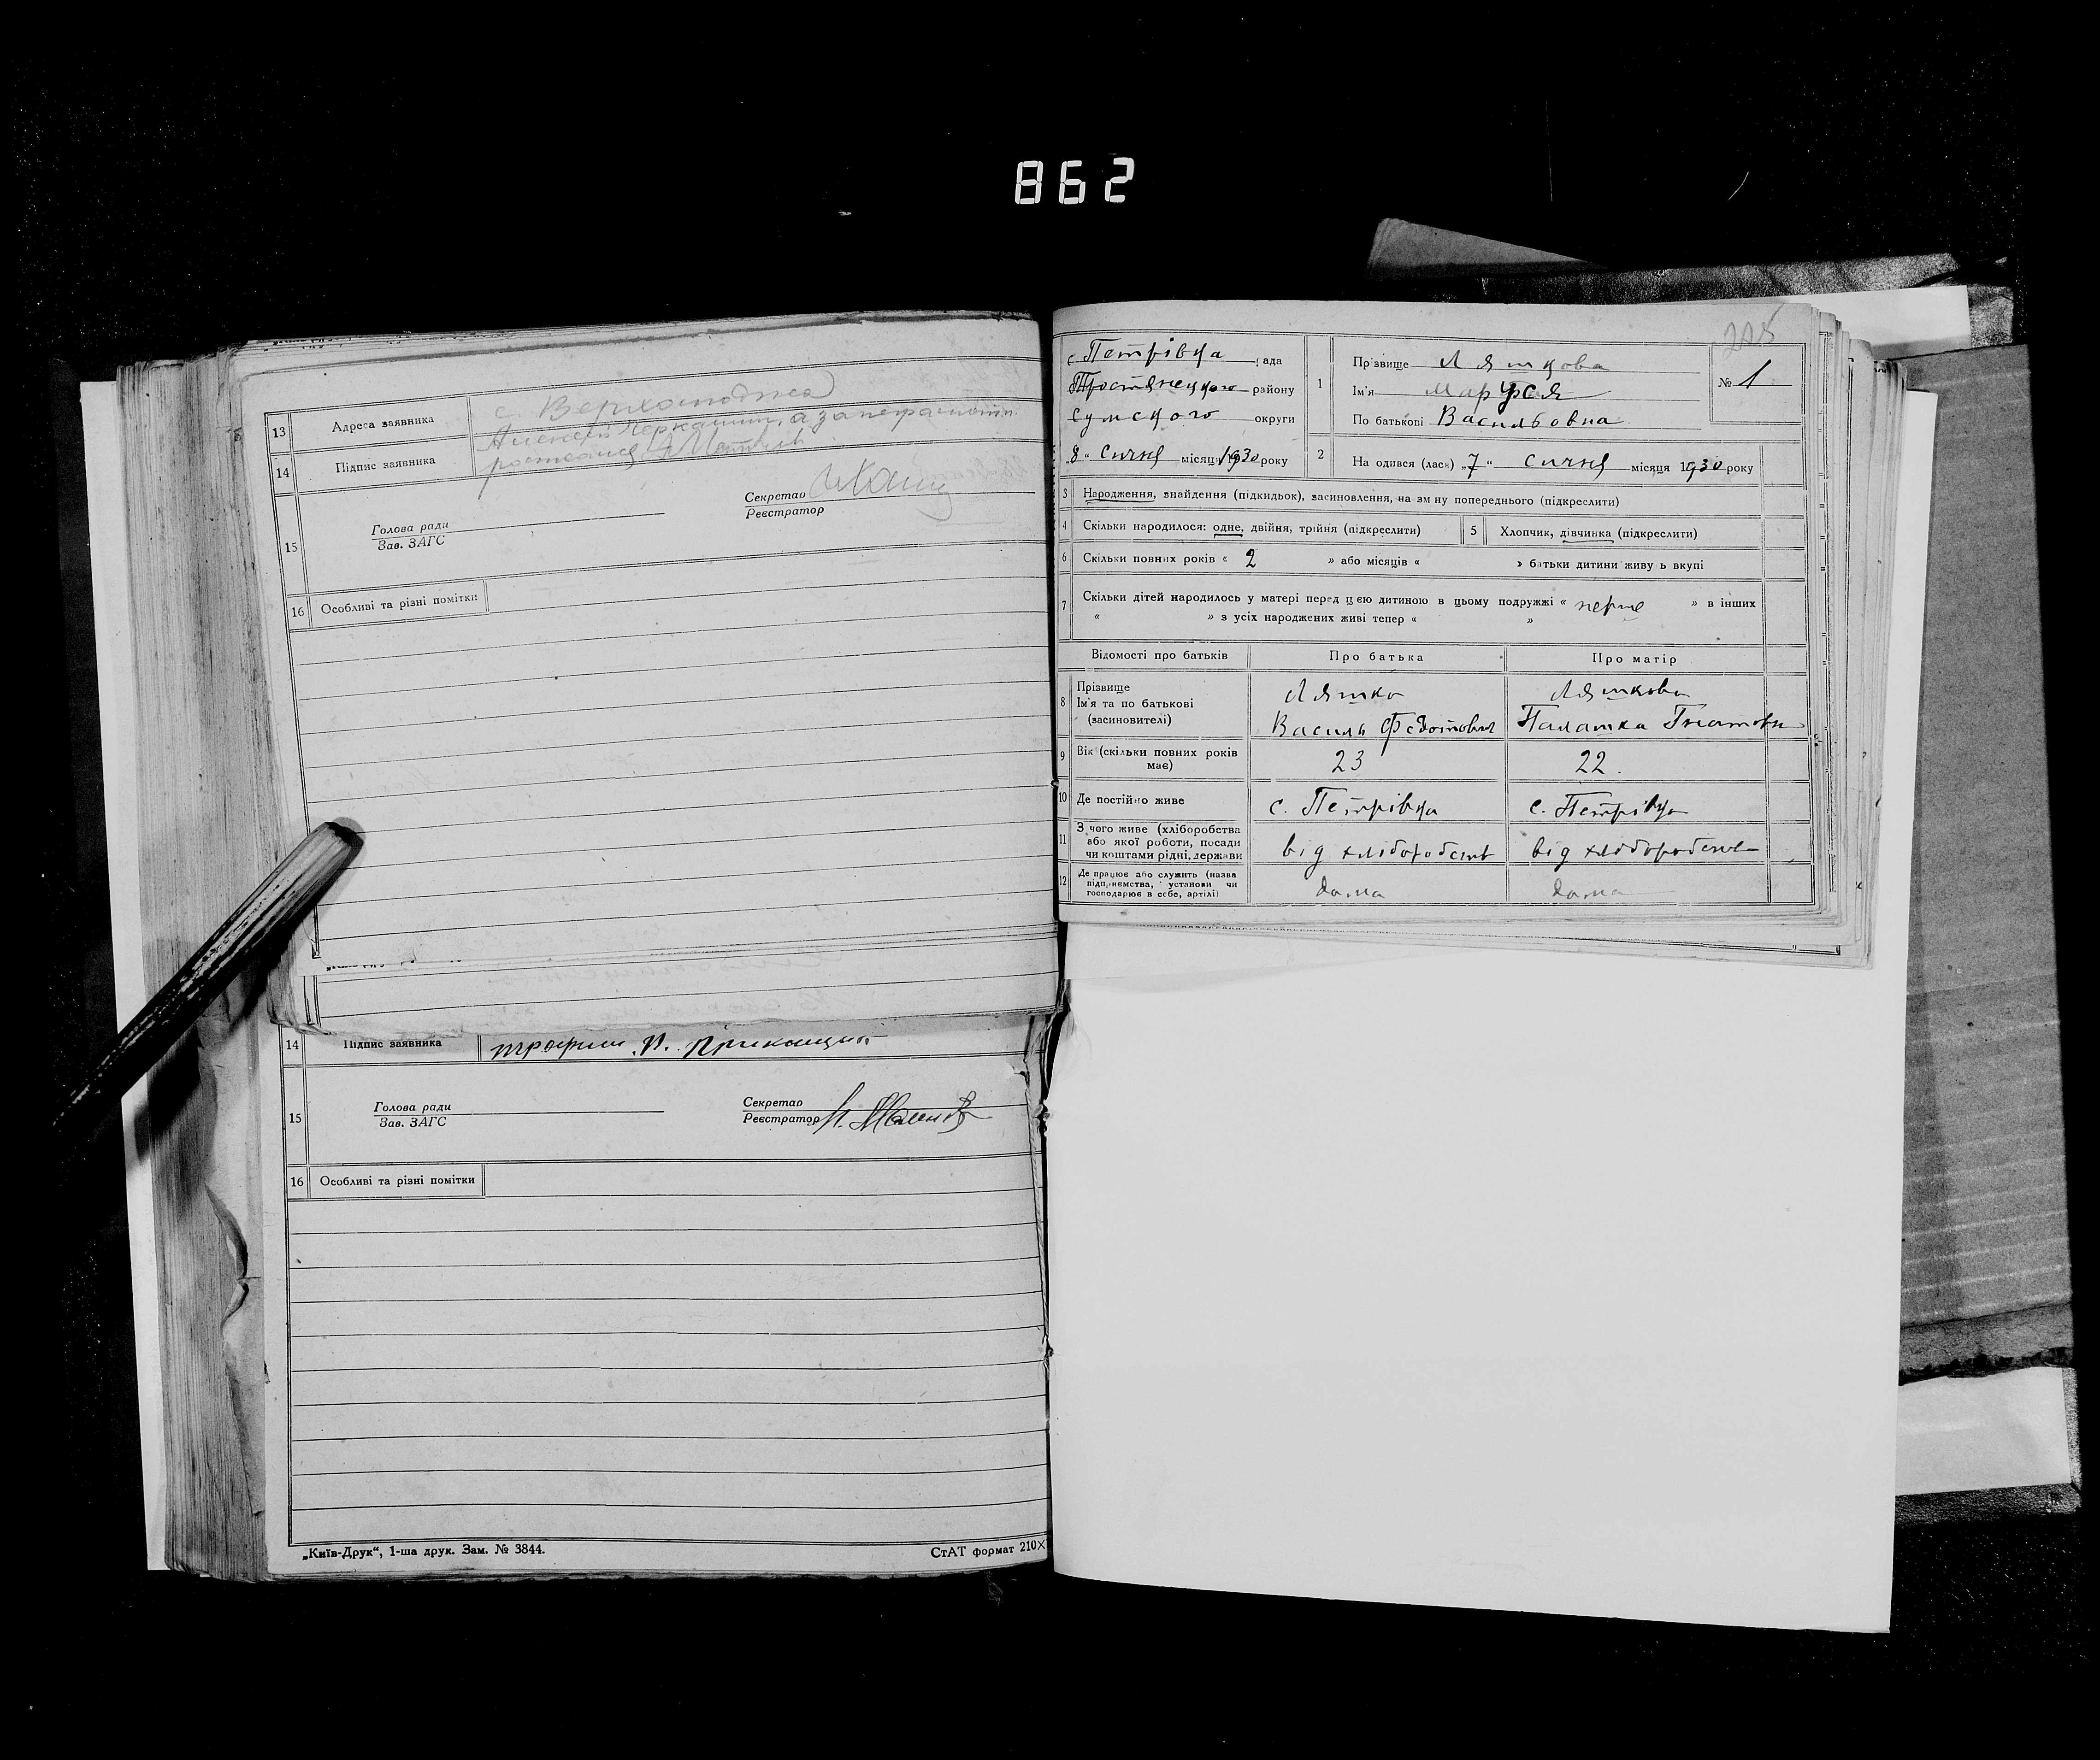 862
13 Адреса заявника с. Верхолюджа
Алексей Черкашин, а за неграмотн.
14 Підпис заявника
15 Голова ради
Зав. ЗАГС
Секретар
Реєстратор
16 Особливі та різні помітки
14 Підпис заявника
15 Голова ради
Зав. ЗАГС
Секретар
Реєстратор
16 Особливі та різні помітки
„Київ-Друк“, 1-ша друк. Зам. № 3844. СтАТ формат 210×
225
с. Петрівка рада
Тростянецкого району
Сумского округи
„8“ Січня місяця 1930 року
1 Прізвище Ляшкова
Ім'я Маруся
По батькові Васильовна
№ 1
2 Народився (лась) „7“ Січня місяця 1930 року
3 Народження, знайдення (підкидьок), засиновлення, на зміну попереднього (підкреслити)
4 Скільки народилося: одне, двійня, трійня (підкреслити) 5 Хлопчик, дівчинка (підкреслити)
6 Скільки повних років « 2 » або місяців « » батьки дитини живуть вкупі
7 Скільки дітей народилось у матері перед цею дитиною в цьому подружжі « перше » в інших
« » з усіх народжених живі тепер « »
Відомості про батьків Про батька Про матір
8 Прізвище Ляшко Ляшкова
Ім'я та по батькові
(засиновителі) Василь Федотович Палашка Гнатовн
9 Вік (скільки повних років має) 23 22.
10 Де постійно живе с. Петрівка с. Петрівка
11 З чого живе (хліборобства
або якої роботи, посади
чи коштами рідні, держави від хліборобств від хліборобства
12 Де працює або служить (назва
підприємства, установи чи
господарює в себе, артілі) дома дома